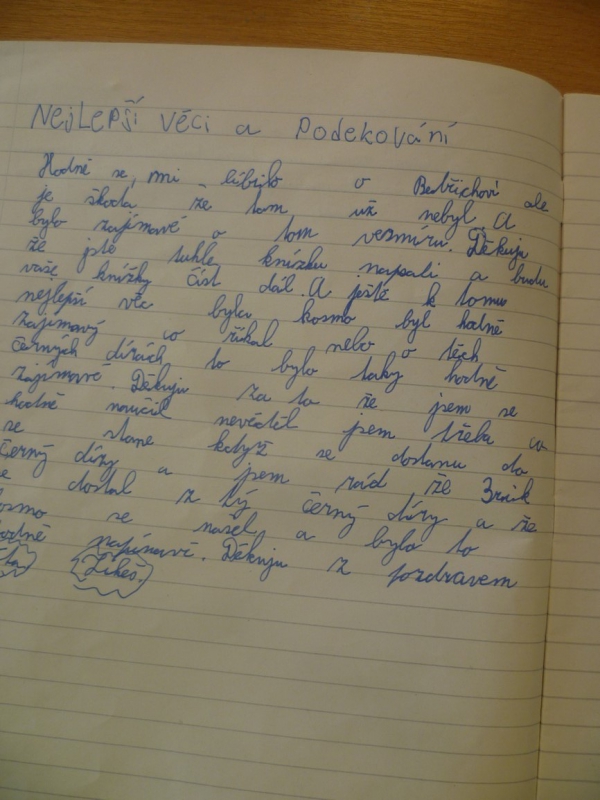 Nejlepší věci a Poděkování
Hodně se mi líbilo o Bedřichovi ale
je škoda že tam už nebyl. A
bylo zajímavé o tom vesmíru. Děkuju
že jste tuhle knížku napsali a budu
vaše knížky číst dál. A ještě k tomu
nejlepší věc byla kosmo byl hodně
zajímavý co říkal nebo o těch
černých dírách to bylo taky hodně
zajímavé. Děkuju za to že jsem se
hodně naučil nevěděl jsem třeba co
se stane když se dostanu do
černý díry a jsem rád že
se dostal z tý černý díry a že
kosmo se našel a bylo to
hodně napínavé. Děkuju z pozdravem